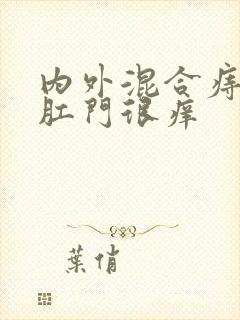 内外混合痔
肛門很痒
葉俏